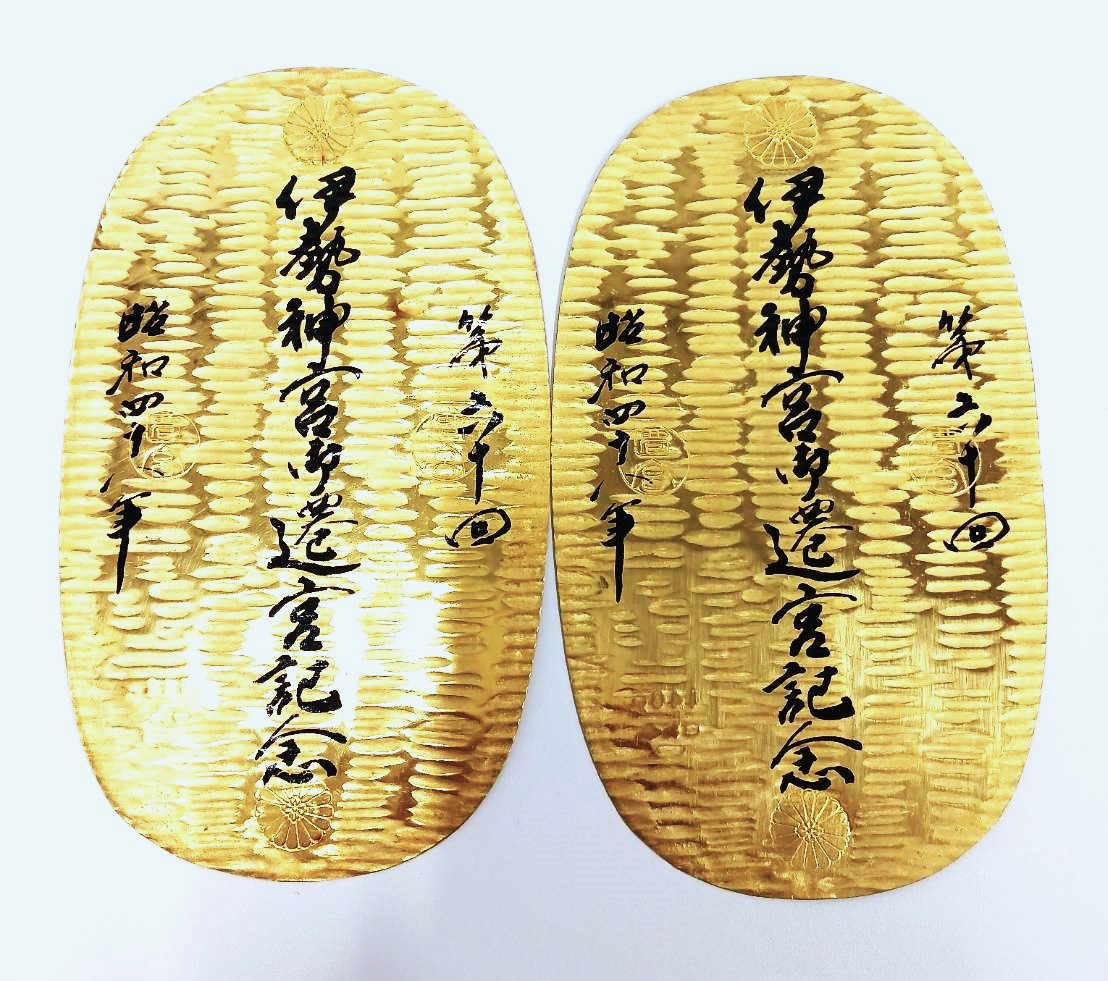 第六十回
伊勢神宮御遷宮記念
昭和四十八年
第六十回
伊勢神宮御遷宮記念
昭和四十八年